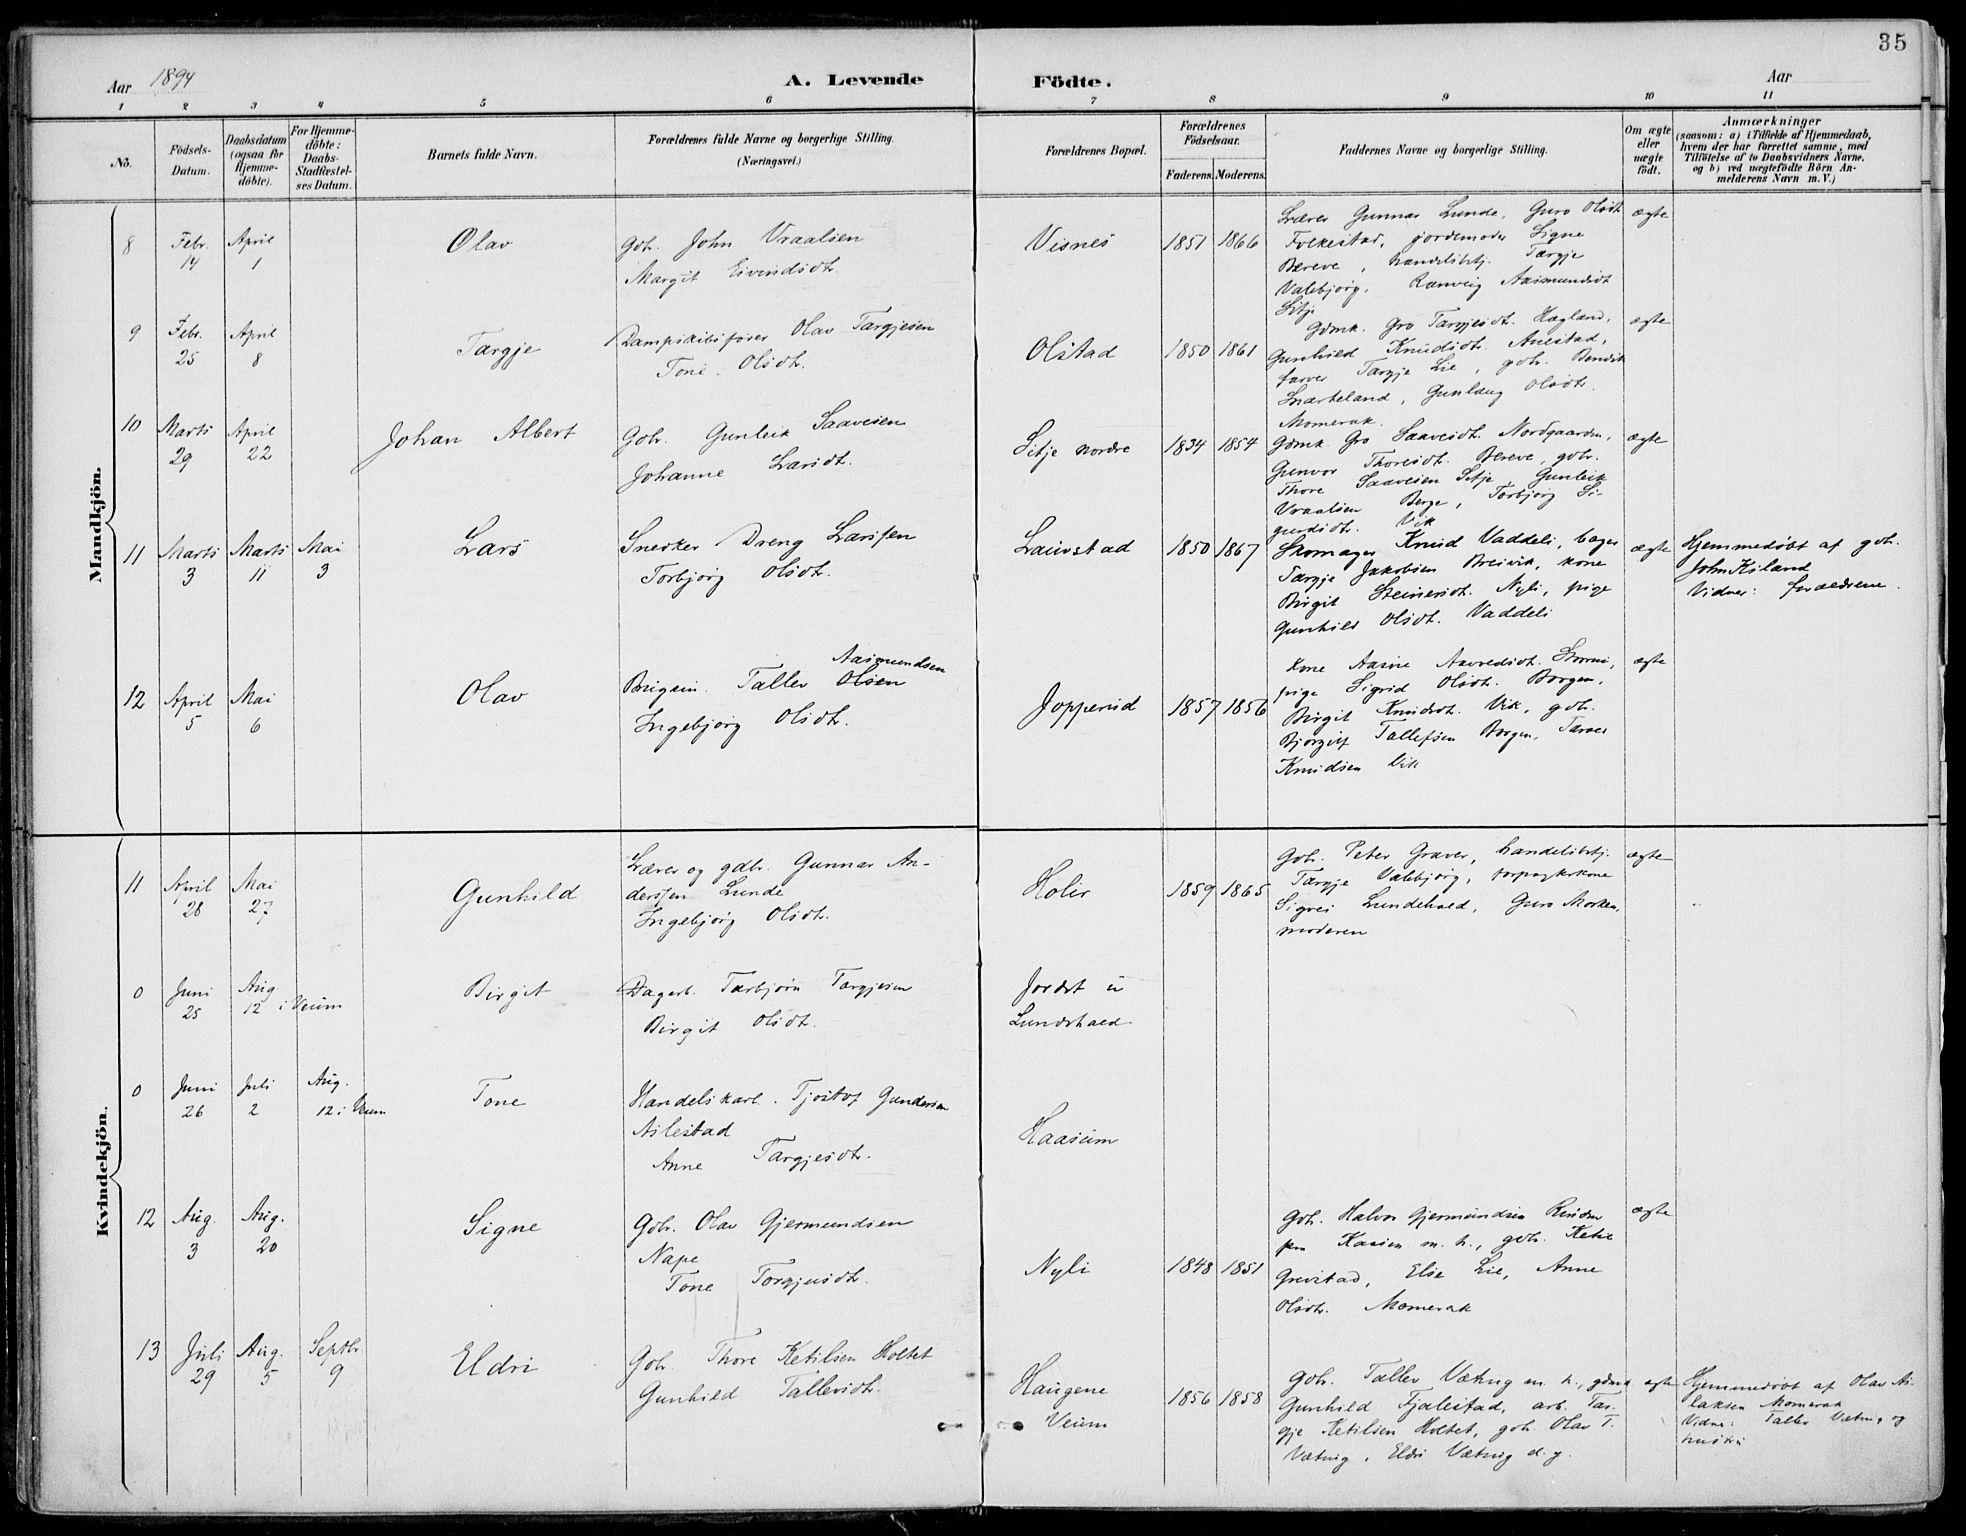 35
Aar 1894
A. Levende Födte.
Aar
1 2 3 4 5 6 7 8 9 10 11
No.
Födsels-Datum.
Daabsdatum (ogsaa for Hjemme-döbte).
For Hjemme-döbte: Daabs-Stadfæstel-ses Datum.
Barnets fulde Navn.
Forældrenes fulde Navne og borgerlige Stilling.
(Næringsvei.)
Forældrenes Bopæl.
Forældrenes Födselsaar.
Faderens. Moderens.
Faddernes Navne og borgerlige Stilling.
Om ægte eller uægte födt.
Anmærkninger
(saasom: a) i Tilfælde af Hjemmedaab, hvem der har forrettet samme, med Tilföielse af to Daabsvidners Navne, og b) ved uægtefödte Börn An-melderens Navn m. V.)
Mandkjön.
8 Febr. 14 April 1
Olav
Gbr. John Vraalsen
Margit Eivindsdtr.
Visnes
1851 1866
Lærer Gunnar Lunde, Guro Olsdt.
Folkestad, jordemoder Signe
Bereve, handelsbtj. Targje
Valebjørg, Ranveig Aasmundsdt
Sitje
ægte
9 Febr. 25 April 8
Targje
Dampskibsfører Olav Targjesen
Tone Olsdtr.
Olstad
1850 1861
Gdmk. Gro Targjesdt. Hagland,
Gunhild Knudsdtr.
farver Targje Lie, gbr. Bendik
Snarteland, Gunlaug Olsdtr.
Momerak.
ægte
10 Marts 29 April 22
Johan Albert
Gbr. Gunleik Saavesen
Johanne Larsdt.
Sitje nordre
1834 1854
Gdmk. Gro Saavesdt. Nordgaarden,
Gunvor Thoresdt. Bereve, gbr.
Thore Saavesen Sitje Gunleik
Vraalsen Berge, Torbjørg Si-
gurdsdtr. Vik
ægte
11 Marts 3 Marts 11 Mai 3
Lars
Snerker Dreng Larssen
Torbjørg Olsdtr.
Lauvstad
1850 1867
Skomager Knud Vaddeli, bager
Targje Jakobsen Breivik, kone
Birgit Steinersdt. Nyli, pige
Gunhild Olsdt. Vaddeli
ægte
Hjemmedøbt af gbr.
John Kiland
Vidner: forældrene.
12 April 5 Mai 6
Olav
Aasmundsen
Brugsm. Tallev Olsen
Ingebjørg Olsdtr.
Jopperud
1857 1856
Kone Aasne
pige Sigrid Olsdt. Borgen,
Birgit Knudsdt. Vik, gbr.
Bjørgulf Tallefsen Borgen, Tarald
Knudsen Vik
ægte
Kvindekjön.
11 April 28 Mai 27
Gunhild
Lærer og gdbr. Gunnar An-
derssen Lunde
Ingebjørg Olsdtr.
Holir
1859 1865
Gbr. Peter Graver, handelsbtj.
Targje Valebjørg,
Sigrei Lundehaed, Guro Morken,
moderen
ægte
0 Juni 25 Aug. 12 i Veum
Birgit
Dagarb. Tarbjørn Targjesen
Birgit Olsdt.
Jordet u
Lundehaed
0 Juni 26 Juli 2 Aug. 12 i Veum
Tone
Handelskarl. Tjostof Gundersen
Aslestad
Anne Targjesdtr.
Haasum
12 Aug. 3 Aug. 20
Signe
Gbr. Olav Gjermundsen
Nape
Tone Torgjusdtr.
Nyli
1848 1851
Gbr. Halvor Gjermundsen
Kaasen m. h., gbr. Ketil
Greistad, Else Lie, Anne
Olsdtr. Momerak
ægte
13 Juli 29 Aug. 5 Septbr. 9
Eldri
Gbr. Thore Ketilsen Holtet
Gunhild Tallevsdtr.
Haugene
Veum
1856 1858
Gbr. Tallev Vætnig m. h., gdmk
Gunhild Fjalestad, arb. Tar-
gje Ketilsen Holtet, gbr. Olav T.
Vætnig, Eldri Vætnig d. y.
ægte
Hjemmedøbt af Olav As-
laksen Momerak
Vidner: Tallev Vætnig og
hustru